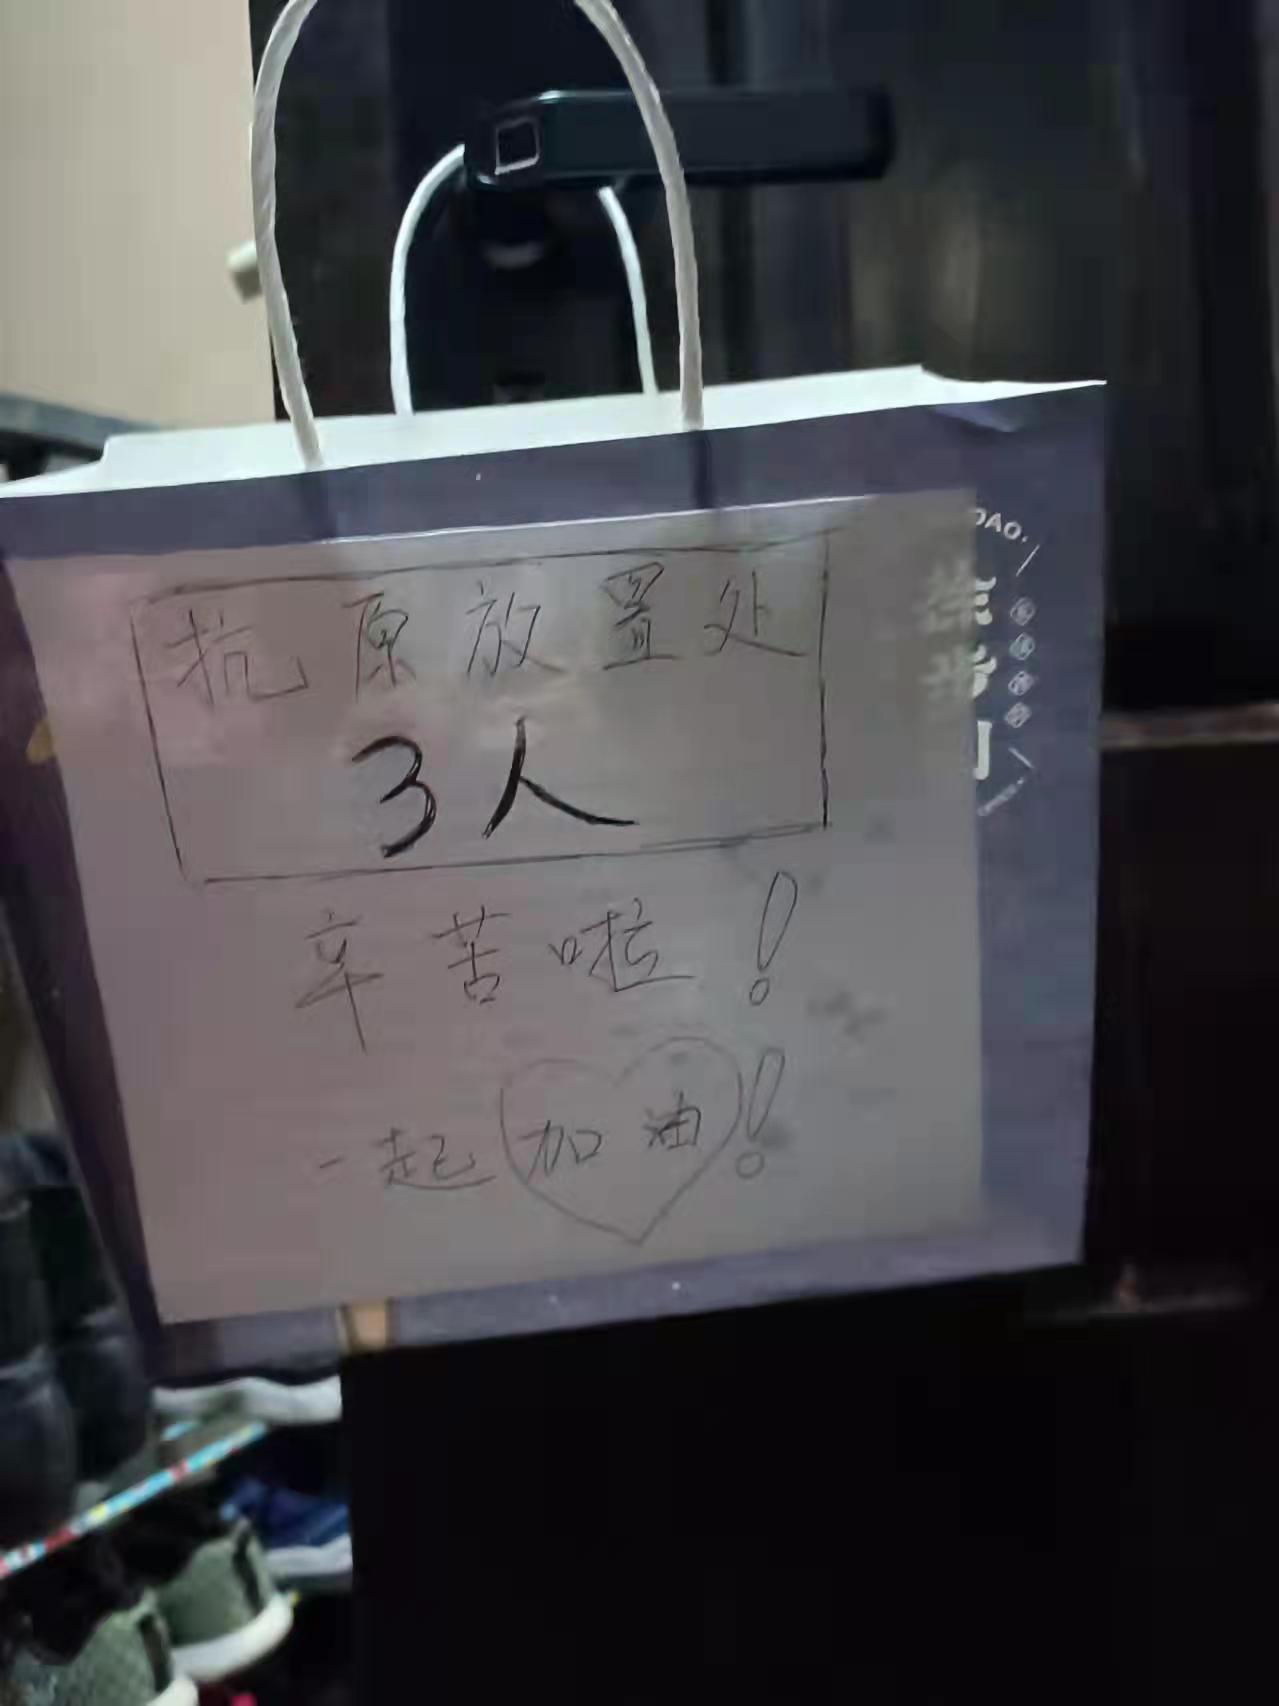 抗原放置处
3人
辛苦啦！
一起加油！
DAO